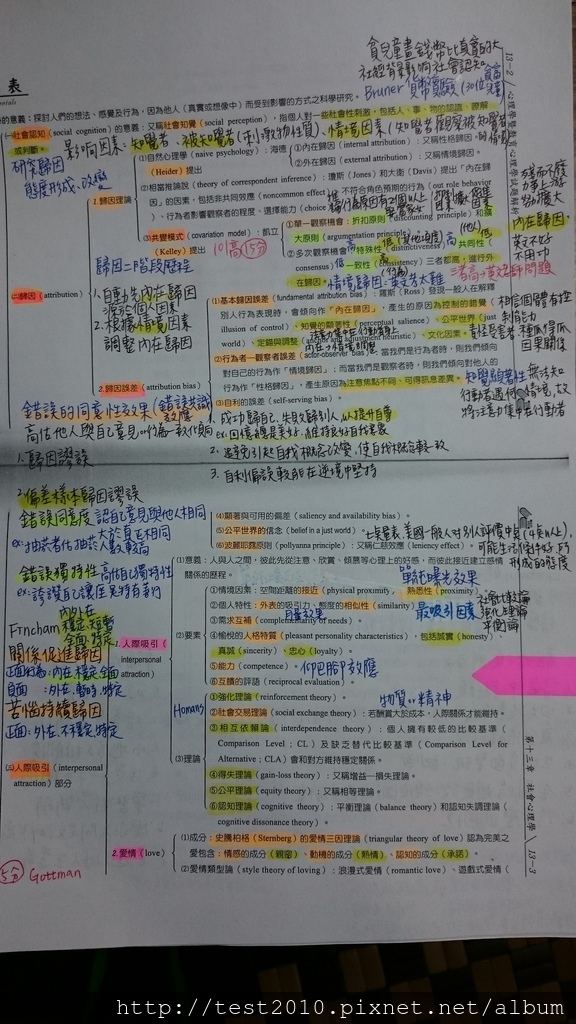 貧兒童畫錢幣比真實的大
社經背景影响社會認知
Bruner 貨幣實驗
13-2
心理學與教育心理學試題解析
表
的意義：探討人們的想法、感覺及行為，因為他人（真實或想像中）而受到影響的方式之科學研究。
(一)社會認知(social cognition)的意義：又稱社會知覺(social perception)，指個人對一些社會性刺激，包括人、事、物的認識、瞭解
或判斷。
影响因素：知覺者、被知覺者(刺激物性質)、情境因素
研究歸因
態度形成、改變
1.歸因理論
(1)自然心理學(naive psychology)：海德
(Heider)提出
①內在歸因(internal attribution)：又稱性格歸因。
②外在歸因(external attribution)：又稱情境歸因。
(2)相當推論說(theory of correspondent inference)：瓊斯(Jones)和大衛(Davis)提出「內在歸
因」的因素，包括非共同效應(noncommon effect)、不符合角色預期的行為(out role behavior
)、行為者影響觀察者的程度、選擇能力(choice
(3)共變模式(covariation model)：凱立
(Kelley)提出
①單一觀察機會：折扣原則(discounting principle)和擴
大原則(argumentation principle)
②多次觀察機會：特殊性(distinctiveness)、共同性(
consensus)、一致性(consistency)三者都高，進行外
在歸因。
內在歸因：
英文不好
不用功
歸因二階段歷程
1.自動先內在歸因
2.根據情境因素
調整內在歸因
(二)歸因(attribution)
2.歸因誤差(attribution bias)
(1)基本歸因誤差(fundamental attribution bias)：羅斯(Ross)發現一般人在解釋
別人行為表現時，會傾向作「內在歸因」，產生的原因為控制的錯覺(
illusion of control)、知覺的顯著性(perceptual salience)、公平世界(just
world)、定錨與調整(anchor and adjustment heuristic)、文化因素。
(2)行為者—觀察者誤差(actor-observer bias)：當我們是行為者時，則我們傾向
對自己的行為作「情境歸因」；而當我們是觀察者時，則我們傾向對他人的
行為作「性格歸因」，產生原因為注意焦點不同、可得訊息差異。
(3)自利的誤差(self-serving bias)。
1. 成功歸自己，失敗歸別人，以提升自尊
3. 自利偏誤較能在逆境中堅持
錯誤的同意性效果(錯誤共識效應)
高估他人與自己意見or行為一致化傾向
1.歸因謬誤
2.偏差樣本歸因謬誤
錯誤同意度 認自己意見與他人相同
ex：抽菸者估抽菸人數較高
錯誤獨特性 高估自己獨特性
(4)顯著與可用的偏差(saliency and availability bias)。
(5)公平世界的信念(belief in a just world)。
(6)波麗耶露原則(pollyanna principle)：又稱仁慈效應(leniency effect)。
Fincham
關係促進歸因
正面行為：內在、穩定、全面
負面：外在、暫時、特定
苦惱持續歸因
正面：外在、不穩定、特定
(三)人際吸引(interpersonal
attraction)部分
1.人際吸引(
interpersonal
attraction)
(1)意義：人與人之間，彼此先從注意、欣賞、傾慕等心理上的好感，而彼此接近建立感情
關係的歷程。
單純曝光效果
(2)要素：
①情境因素：空間距離的接近(physical proximity)、熟悉性(proximity)
②個人特性：外表的吸引力、態度的相似性(similarity)
③需求互補(complementarity of needs)。
④愉悅的人格特質(pleasant personality characteristics)，包括誠實(honesty)、
真誠(sincerity)、忠心(loyalty)。
⑤能力(competence)。仰巴腳效應
⑥互饋的評語(reciprocal evaluation)。
最吸引因素
社會比較論
強化理論
平衡論
Homans
物質or精神
(3)理論
①強化理論(reinforcement theory)。
②社會交易理論(social exchange theory)：若酬賞大於成本，人際關係才能維持。
③相互依賴論(interdependence theory)：個人擁有較低的比較基準(
Comparison Level；CL)及缺乏替代比較基準(Comparison Level for
Alternative；CLA)會和對方維持穩定關係。
④得失理論(gain-loss theory)：又稱增益—損失理論。
⑤公平理論(equity theory)：又稱相等理論。
⑥認知理論(cognitive theory)：平衡理論(balance theory)和認知失調理論(
cognitive dissonance theory)。
第十三章 社會心理學
13-3
2.愛情(love)
(1)成分：史騰柏格(Sternberg)的愛情三因理論(triangular theory of love)認為完美之
愛包含：情感的成分(親密)、動機的成分(熱情)、認知的成分(承諾)。
(2)愛情類型論(style theory of loving)：浪漫式愛情(romantic love)、遊戲式愛情(
5分
Gottman
http://test2010.pixnet.net/album